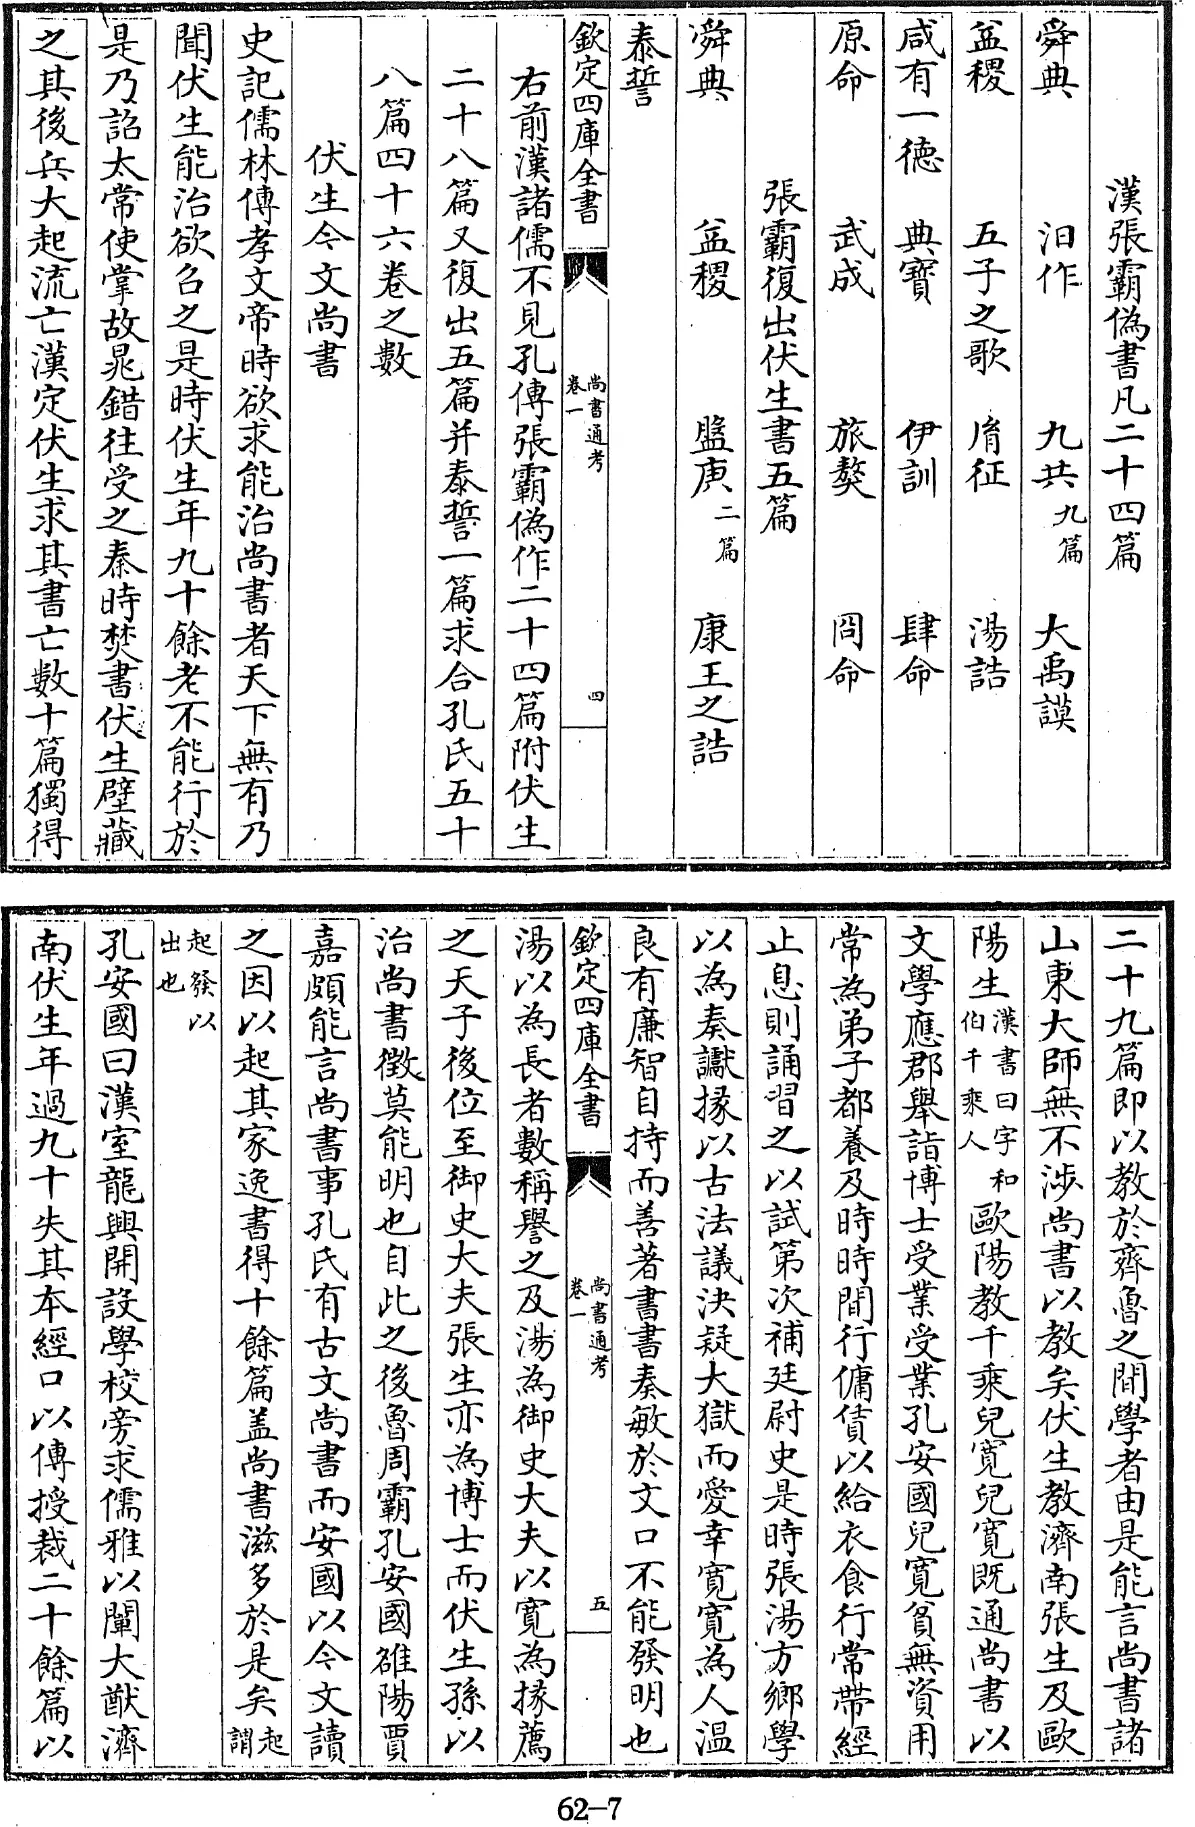 漢張霸偽書凡二十四篇
舜典　汨作　九共九篇　大禹謨
益稷　五子之歌　胤征　湯誥
咸有一德　典寶　伊訓　肆命
原命　武成　旅獒　冏命
張霸復出伏生書五篇
舜典　益稷　盤庚二篇　康王之誥
泰誓
欽定四庫全書　尚書通考卷一　四
右前漢諸儒不見孔傳張霸偽作二十四篇附伏生
二十八篇又復出五篇并泰誓一篇求合孔氏五十
八篇四十六卷之數
伏生今文尚書
史記儒林傳孝文帝時欲求能治尚書者天下無有乃
聞伏生能治欲召之是時伏生年九十餘老不能行於
是乃詔太常使掌故晁錯往受之秦時焚書伏生壁藏
之其後兵大起流亡漢定伏生求其書亡數十篇獨得
二十九篇即以教於齊魯之間學者由是能言尚書諸
山東大師無不涉尚書以教矣伏生教濟南張生及歐
陽生漢書曰字和伯千乘人歐陽教千乘兒寬兒寬既通尚書以
文學應郡舉詣博士受業受業孔安國兒寬貧無資用
常為弟子都養及時時間行傭賃以給衣食行常帶經
止息則誦習之以試第次補廷尉史是時張湯方鄉學
以為奏讞掾以古法議決疑大獄而愛幸寬寬為人溫
良有廉智自持而善著書書奏敏於文口不能發明也
欽定四庫全書　尚書通考卷一　五
湯以為長者數稱譽之及湯為御史大夫以寬為掾薦
之天子後位至御史大夫張生亦為博士而伏生孫以
治尚書徵莫能明也自此之後魯周霸孔安國雒陽賈
嘉頗能言尚書事孔氏有古文尚書而安國以今文讀
之因以起其家逸書得十餘篇盖尚書滋多於是矣起謂
起發以出也
孔安國曰漢室龍興開設學校旁求儒雅以闡大猷濟
南伏生年過九十失其本經口以傳授裁二十餘篇以
62-7